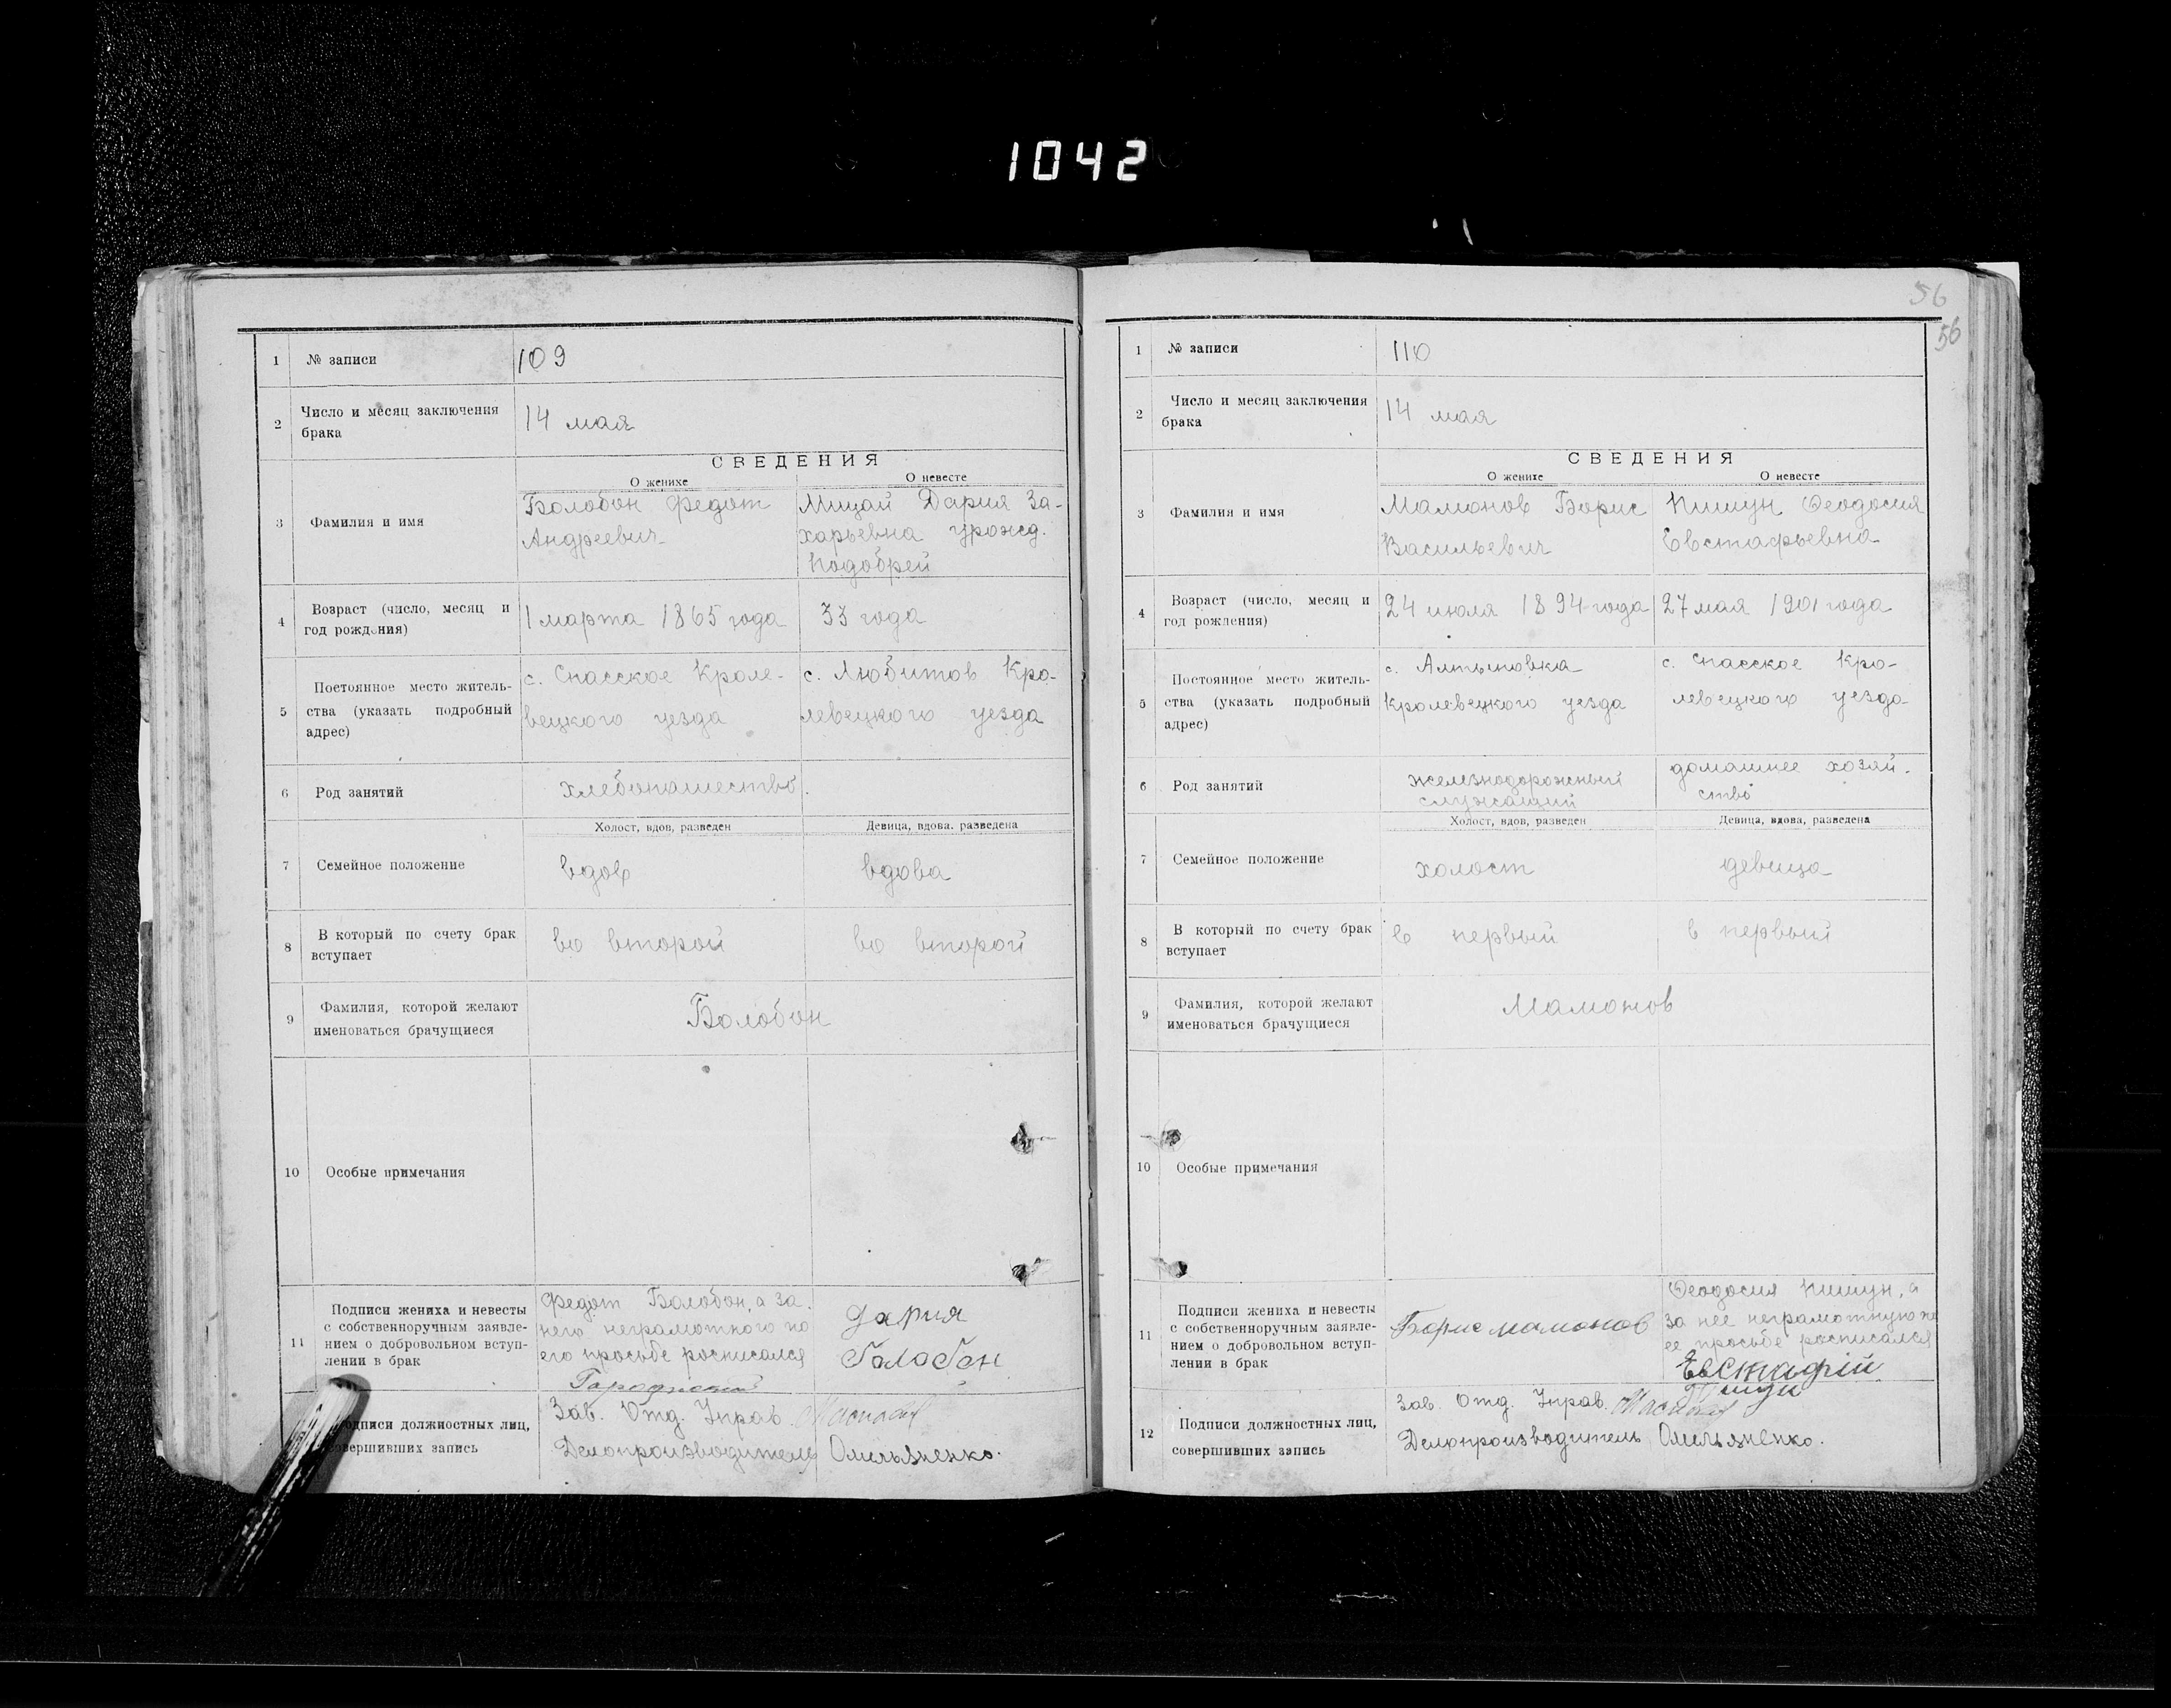 1042
1 № записи 109
2 Число и месяц заключения
брака
14 мая
СВЕДЕНИЯ
О женихе О невесте
3 Фамилия и имя
Болобон Федот
Андреевич
Мицай Дария За-
харьевна урожд.
Подобрей
4 Возраст (число, месяц и
год рождения)
1 марта 1865 года
33 года
5 Постоянное место житель-
ства (указать подробный
адрес)
с. Спасское Кроле-
вецкого уезда
с. Любитов Кро-
левецкого уезда
6 Род занятий
хлебопашество
Холост, вдов, разведен Девица, вдова. разведена
7 Семейное положение
вдов вдова
8 В который по счету брак
вступает
во второй во второй
9 Фамилия, которой желают
именоваться брачущиеся
Болобон
10 Особые примечания
11 Подписи жениха и невесты
с собственноручным заявле-
нием о добровольном вступ-
лении в брак
Федот Болобон, а за
него неграмотного по
его просьбе расписался
Дария
Болобон
Подписи должностных лиц,
совершивших запись
Зав. Отд. Управ.
Делопроизводитель Омельяненко.
56
56
1 № записи 110
2 Число и месяц заключения
брака
14 мая
СВЕДЕНИЯ
О женихе О невесте
3 Фамилия и имя
Мамонов Борис
Васильевич
Пишун Феодосия
Евстафьевна
4 Возраст (число, месяц и
год рождения)
24 июля 1894 года
27 мая 1901 года
5 Постоянное место житель-
ства (указать подробный
адрес)
с. Алтыновка
Кролевецкого уезда
с. Спасское Кро-
левецкого уезда
6 Род занятий
железнодорожный
служащий
домашнее хозяй-
ство
Холост, вдов, разведен Девица, вдова, разведена
7 Семейное положение
холост девица
8 В который по счету брак
вступает
в первый в первый
9 Фамилия, которой желают
именоваться брачущиеся
Мамонов
10 Особые примечания
11 Подписи жениха и невесты
с собственноручным заявле-
нием о добровольном вступ-
лении в брак
Борис Мамонов
Феодосия Пишун, а
за нее неграмотную по
ее просьбе расписался
Евстафій
Пишун
12 Подписи должностных лиц,
совершивших запись
Зав. Отд. Управ.
Делопроизводитель Омельяненко.